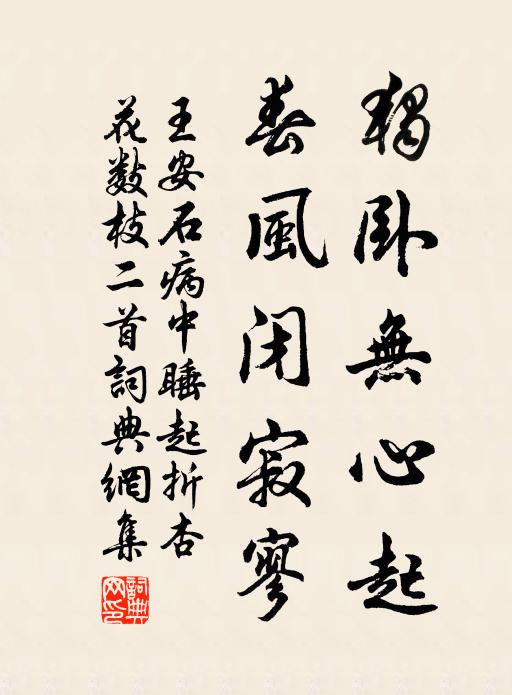 獨卧無心起
春風閉寂寥
王安石病中睡起折杏
花數枝二首詞典網集
詞典
网印